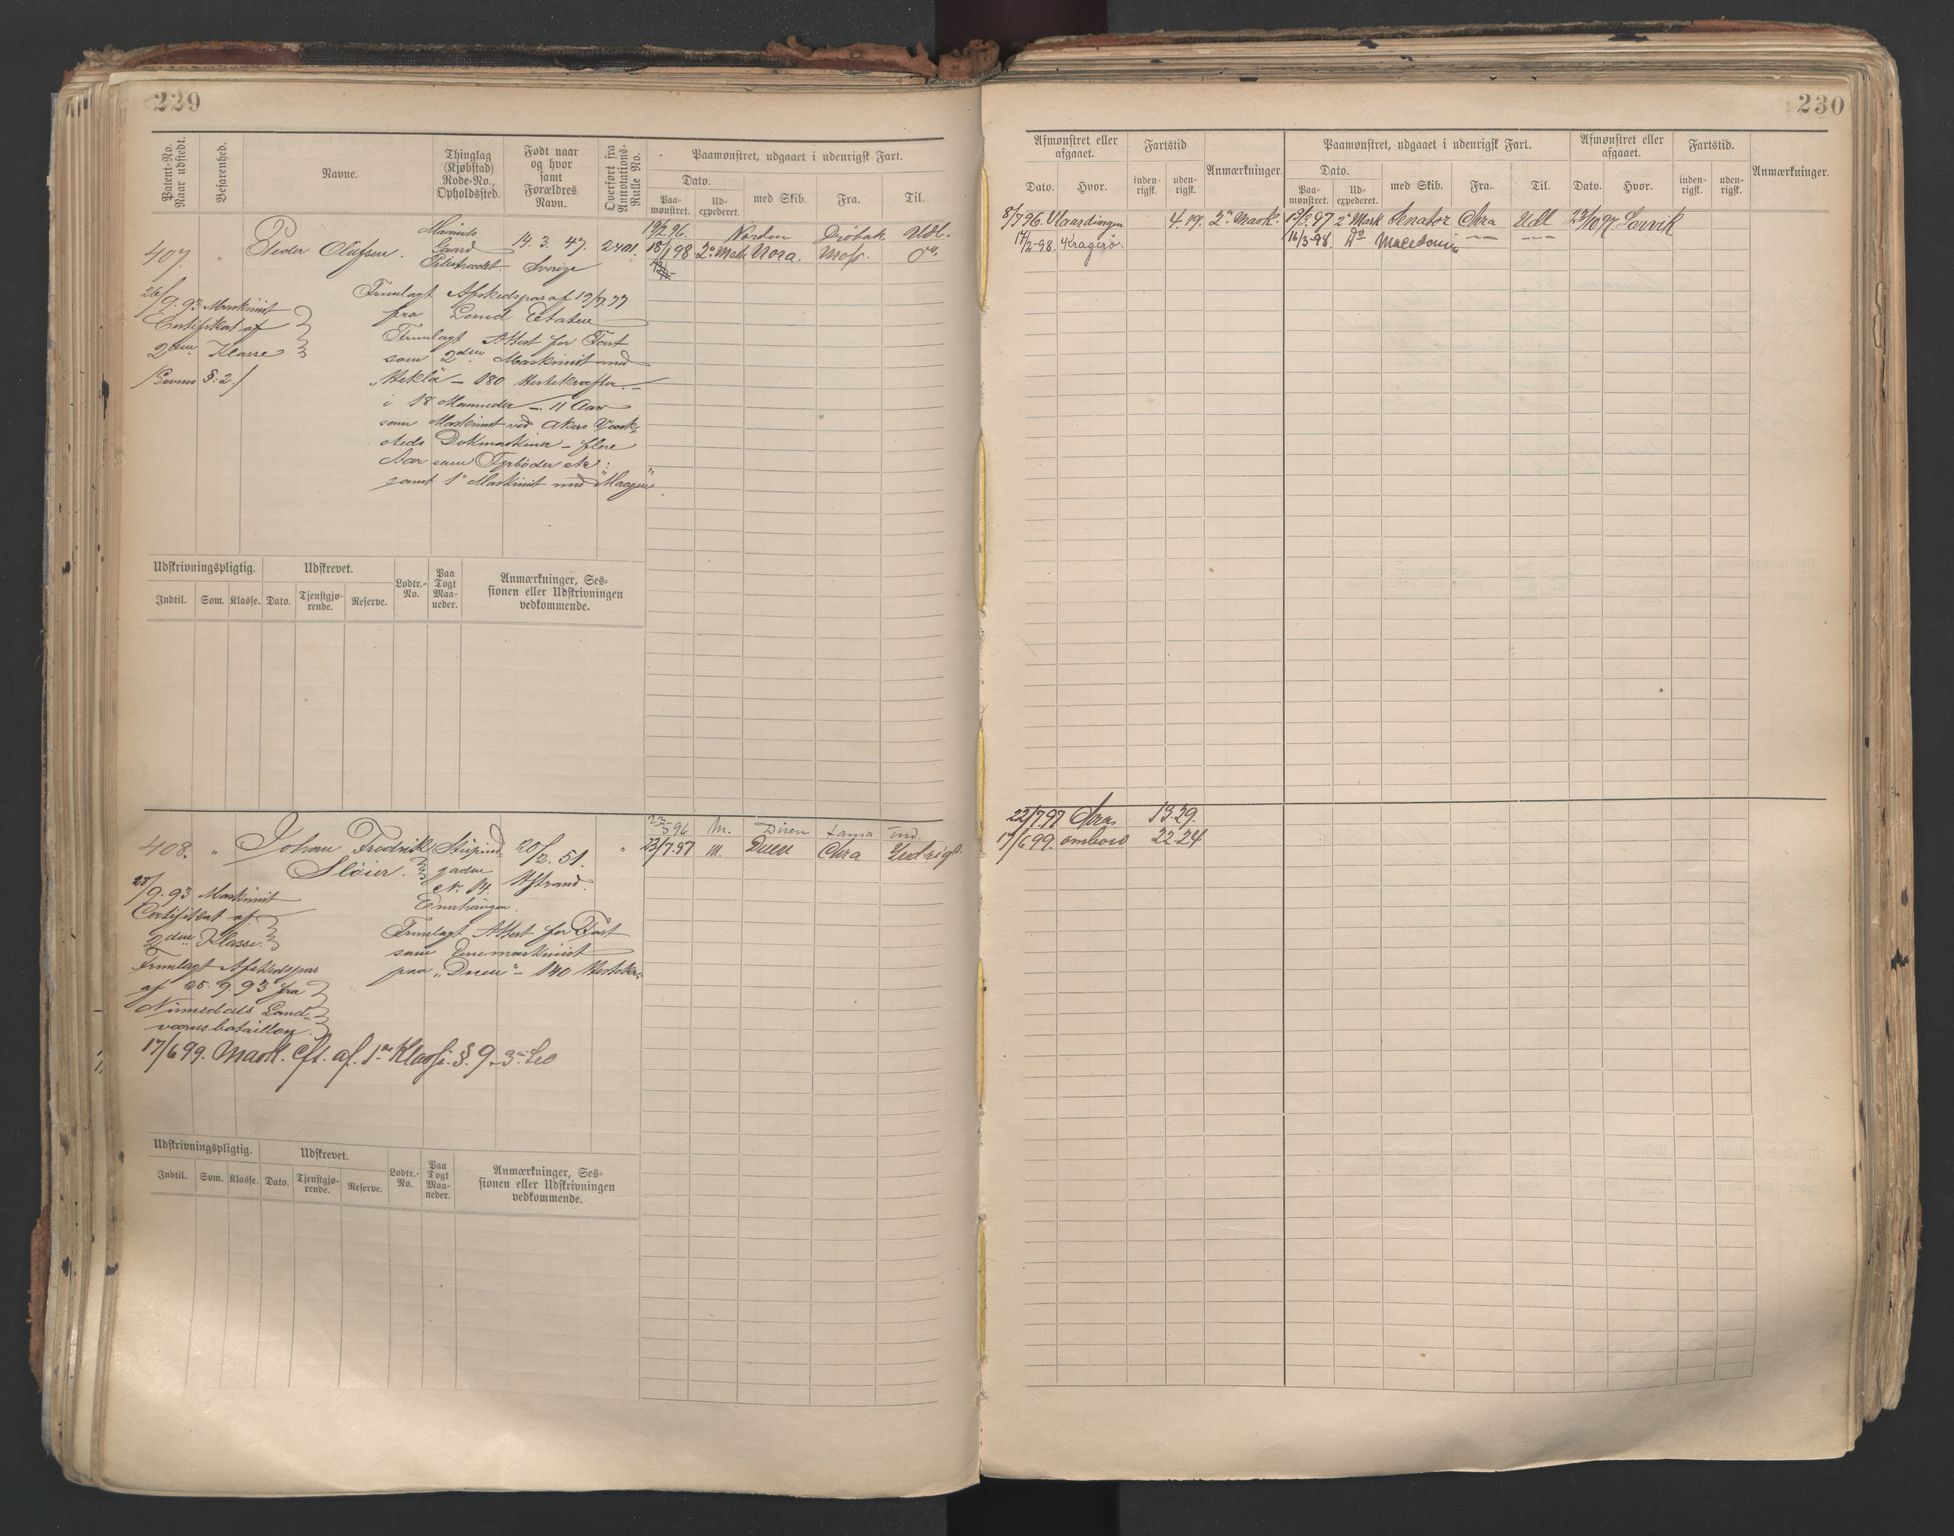 229
Patent-No. Naar udstedt.
Befarenhed.
Navne.
Thinglag (Kjøbstad) Rode-No., Opholdssted.
Født naar og hvor samt Forældres Navn.
Overført fra Annotations-Rulle No.
Paamønstret, udgaaet i udenrigsk Fart.
Dato.
Paa-mønstret.
Ud-expederet.
med Skib.
Fra.
Til.
407.
Peder Olufsen.
Gaard
Pilestrædet.
14. 3. 47.
Sverige
2401.
19/2 96. Norden Drøbak Udl.
18/1 98 2den Mask Nora. Moss.
26/9. 93 Maskinist
Certifikat af
2den Klasse
§: 2./
Fremlagt Afskedspas af
fra
Fremlagt Attest for Fart
som 2den Maskinist med
"Hekla" - 180 Hestekræfter. -
i 18 Maaneder - 11 Aar
som Maskinist ved Akers Værk-
steds Dokmaskiner - flere
Aar som Fyrbøder etc:
samt 1ste Maskinist med "Maagen"
Udskrivningspligtig.
Udskrevet.
Lodtr.-No.
Paa Togt Maa-neder.
Anmærkninger, Ses-sionen eller Udskrivningen vedkommende.
Indtil.
Som.
Klasse.
Dato.
Tjenstgjø-rende.
Reserve.
408.
"
Johan Fredrik
Sløier.
gaden
No 14.
20/2. 51.
"
23/5 96 M.
23/7.97 M. Chra
28/9. 93 Maskinist
Certifikat af
2den Klasse.
Fremlagt Afskedspas
af 25. 9. 93 fra
Land-
værnsbataillon.
Fremlagt Attest for Fart
som Enemaskinist
paa - 140 Hestekr:
17/6 99. Mask. Cft. af. 1ste Klasse. §. 9. 3die Led
Udskrivningspligtig.
Udskrevet.
Lodtr.-No.
Paa Togt Maa-neder.
Anmærkninger, Ses-sionen eller Udskrivningen vedkommende.
Indtil.
Som.
Klasse.
Dato.
Tjenstgjø-rende.
Reserve.
230
Afmønstret eller afgaaet.
Fartstid
Anmærkninger.
Paamønstret, udgaaet i udenrigsk Fart.
Afmønstret eller afgaaet.
Fartstid.
Anmærkninger.
Dato.
Hvor.
inden-rigsk.
uden-rigsk.
Dato.
Paa-mønstret.
Ud-expederet.
med Skib.
Fra.
Til.
Dato.
Hvor.
inden-rigsk.
uden-rigsk.
8/7 96. Vlaardingen 4.19. 2den Mask. 13/3.97 2den Mask Senator Chra Udl 23/10 97 Larvik
17/2-98. Kragerø. 16/3-98. Do Macedonia
22/7.97 Chra 13.29.
17/6 99. ombord 22.24